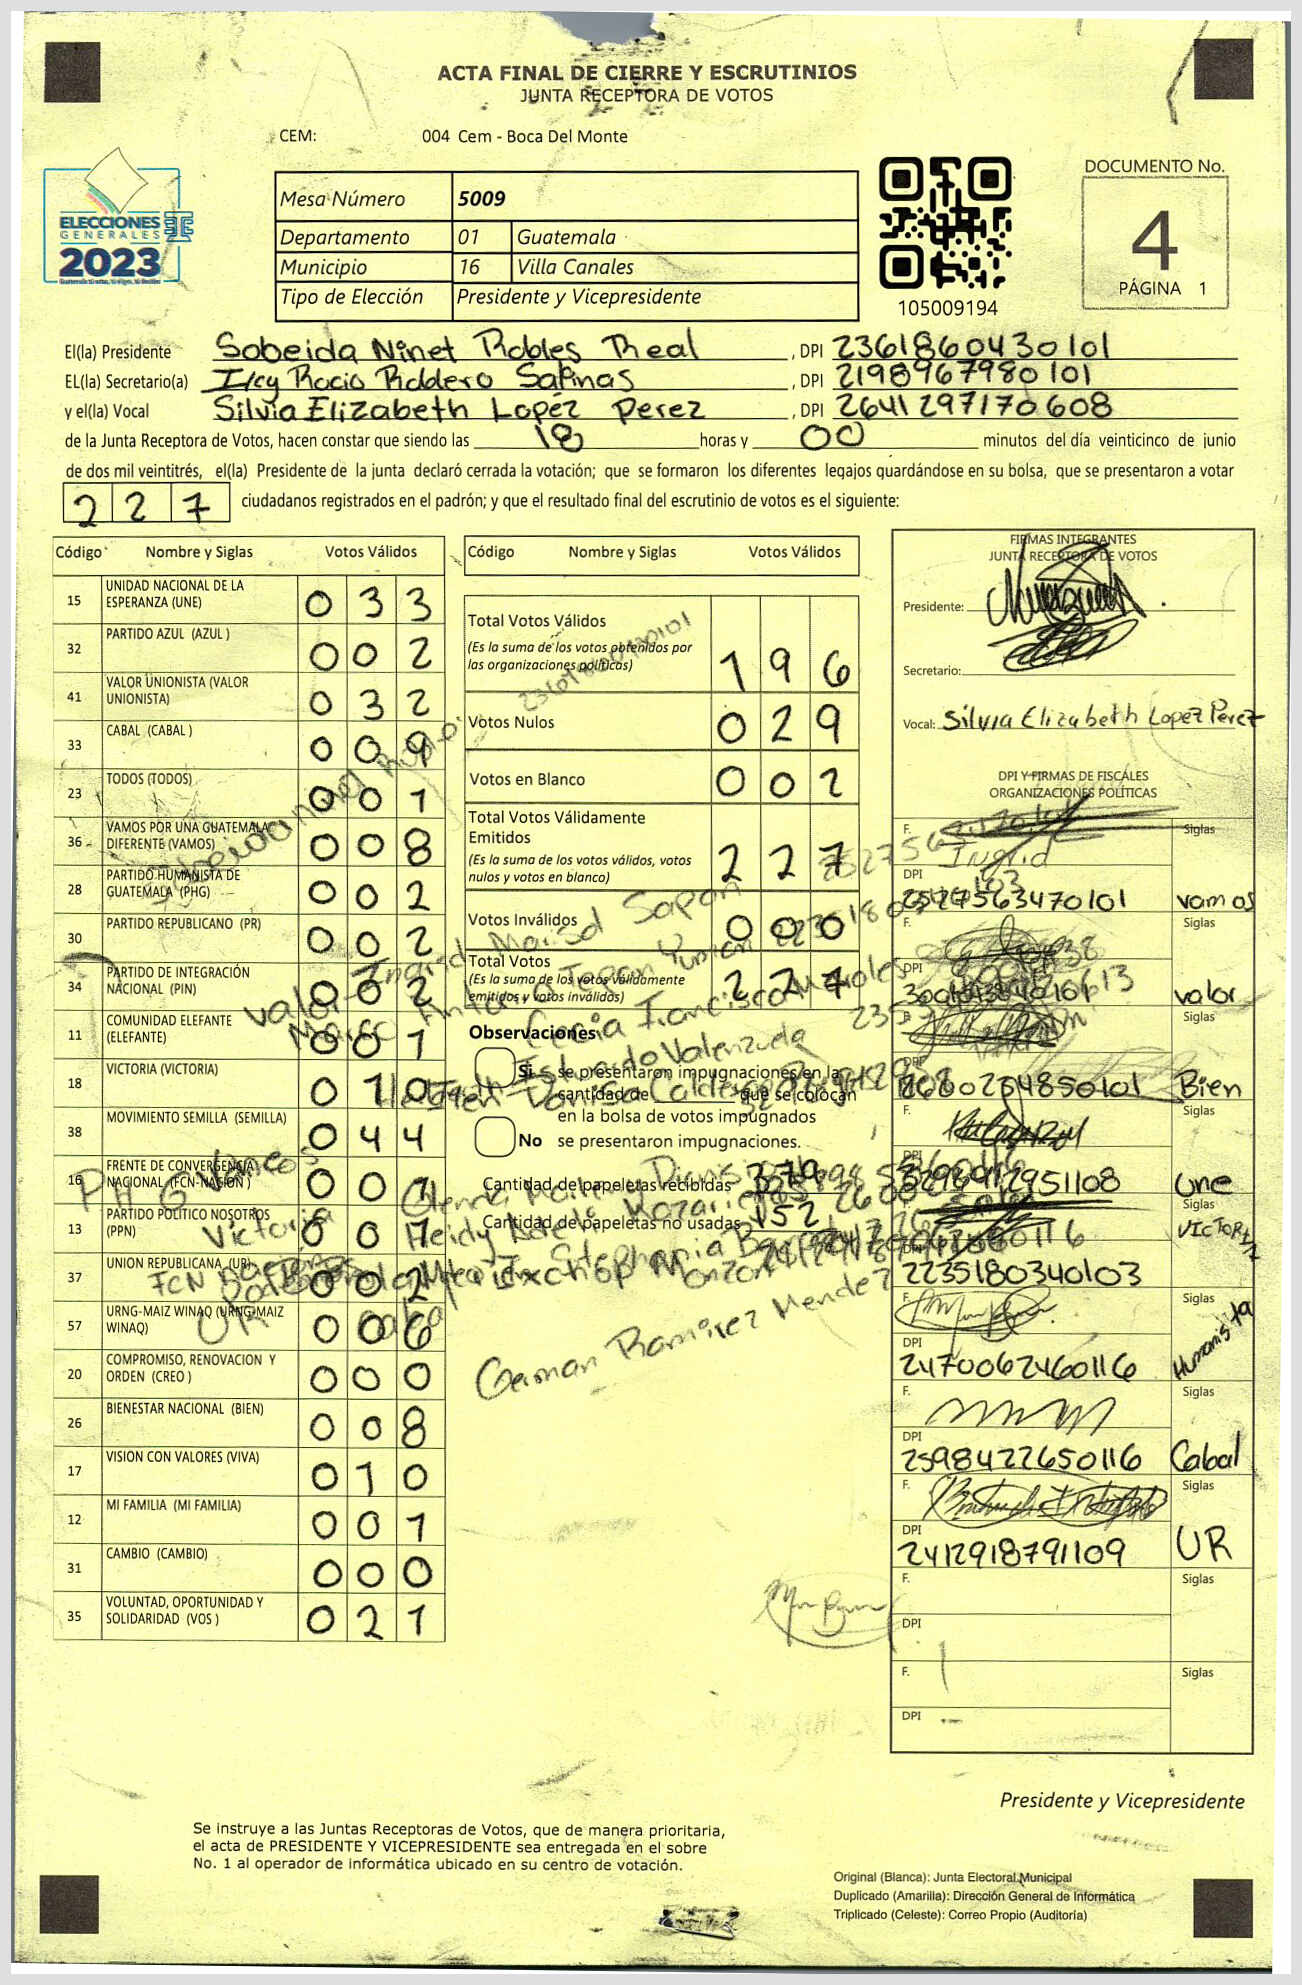 ACTA FINAL DE CIERRE Y ESCRUTINIOS
JUNTA RECEPTORA DE VOTOS
CEM: 004 Cem - Boca Del Monte
ELECCIONES
GENERALES
2023
Mesa Número 5009
Departamento 01 Guatemala
Municipio 16 Villa Canales
Tipo de Elección Presidente y Vicepresidente
105009194
DOCUMENTO No.
4
PÁGINA 1
El(la) Presidente Sobeida Ninet Robles Real , DPI 2361860430101
EL(la) Secretario(a) Rocio , DPI 2198967980101
y el(la) Vocal Silvia Elizabeth Lopéz Perez , DPI 2641297170608
de la Junta Receptora de Votos, hacen constar que siendo las 18 horas y 00 minutos del día veinticinco de junio
de dos mil veintitrés, el(la) Presidente de la junta declaró cerrada la votación; que se formaron los diferentes legajos guardándose en su bolsa, que se presentaron a votar
227 ciudadanos registrados en el padrón; y que el resultado final del escrutinio de votos es el siguiente:
Código Nombre y Siglas Votos Válidos
15 UNIDAD NACIONAL DE LA ESPERANZA (UNE) 033
32 PARTIDO AZUL (AZUL ) 002
41 VALOR UNIONISTA (VALOR UNIONISTA) 032
33 CABAL (CABAL ) 009
23 TODOS (TODOS) 001
36 VAMOS POR UNA GUATEMALA DIFERENTE (VAMOS) 008
28 PARTIDO HUMANISTA DE GUATEMALA (PHG) 002
30 PARTIDO REPUBLICANO (PR) 002
34 PARTIDO DE INTEGRACIÓN NACIONAL (PIN) 002
11 COMUNIDAD ELEFANTE (ELEFANTE) 001
18 VICTORIA (VICTORIA) 010
38 MOVIMIENTO SEMILLA (SEMILLA) 044
16 FRENTE DE CONVERGENCIA NACIONAL (FCN-NACION ) 001
13 PARTIDO POLITICO NOSOTROS (PPN) 001
37 UNION REPUBLICANA (UR) 002
57 URNG-MAIZ WINAQ (URNG-MAIZ WINAQ) 006
20 COMPROMISO, RENOVACION Y ORDEN (CREO ) 000
26 BIENESTAR NACIONAL (BIEN) 008
17 VISION CON VALORES (VIVA) 010
12 MI FAMILIA (MI FAMILIA) 001
31 CAMBIO (CAMBIO) 000
35 VOLUNTAD, OPORTUNIDAD Y SOLIDARIDAD (VOS ) 021
Código Nombre y Siglas Votos Válidos
Total Votos Válidos 196
(Es la suma de los votos obtenidos por
las organizaciones políticas)
Votos Nulos 029
Votos en Blanco 002
Total Votos Válidamente
Emitidos 227
(Es la suma de los votos válidos, votos
nulos y votos en blanco)
Votos Inválidos 000
Total Votos 227
(Es la suma de los votos válidamente
emitidos y votos inválidos)
Observaciones
Si se presentaron impugnaciones en la
cantidad de que se colocan
en la bolsa de votos impugnados
No se presentaron impugnaciones.
Cantidad de papeletas recibidas 379
Cantidad de papeletas no usadas 152
German Ramirez Mendez
FIRMAS INTEGRANTES
JUNTA RECEPTORA DE VOTOS
Presidente:
Secretario:
Vocal: Silvia Elizabeth Lopez Perez
DPI Y FIRMAS DE FISCALES
ORGANIZACIONES POLÍTICAS
F. Ingrid Siglas
DPI 2527563470101 vamos
F. Siglas
DPI valor
F. Siglas
DPI 2680254850101 Bien
F. Siglas
DPI une
F. Siglas
DPI 2235180340103 VICTORIA
F. Siglas
DPI 2470062460116 Humanista
F. Siglas
DPI 2598422650116 Cabal
F. Siglas
DPI 2412918791109 UR
F. Siglas
DPI
F. Siglas
DPI
Presidente y Vicepresidente
Se instruye a las Juntas Receptoras de Votos, que de manera prioritaria,
el acta de PRESIDENTE Y VICEPRESIDENTE sea entregada en el sobre
No. 1 al operador de informática ubicado en su centro de votación.
Original (Blanca): Junta Electoral Municipal
Duplicado (Amarilla): Dirección General de Informática
Triplicado (Celeste): Correo Propio (Auditoría)